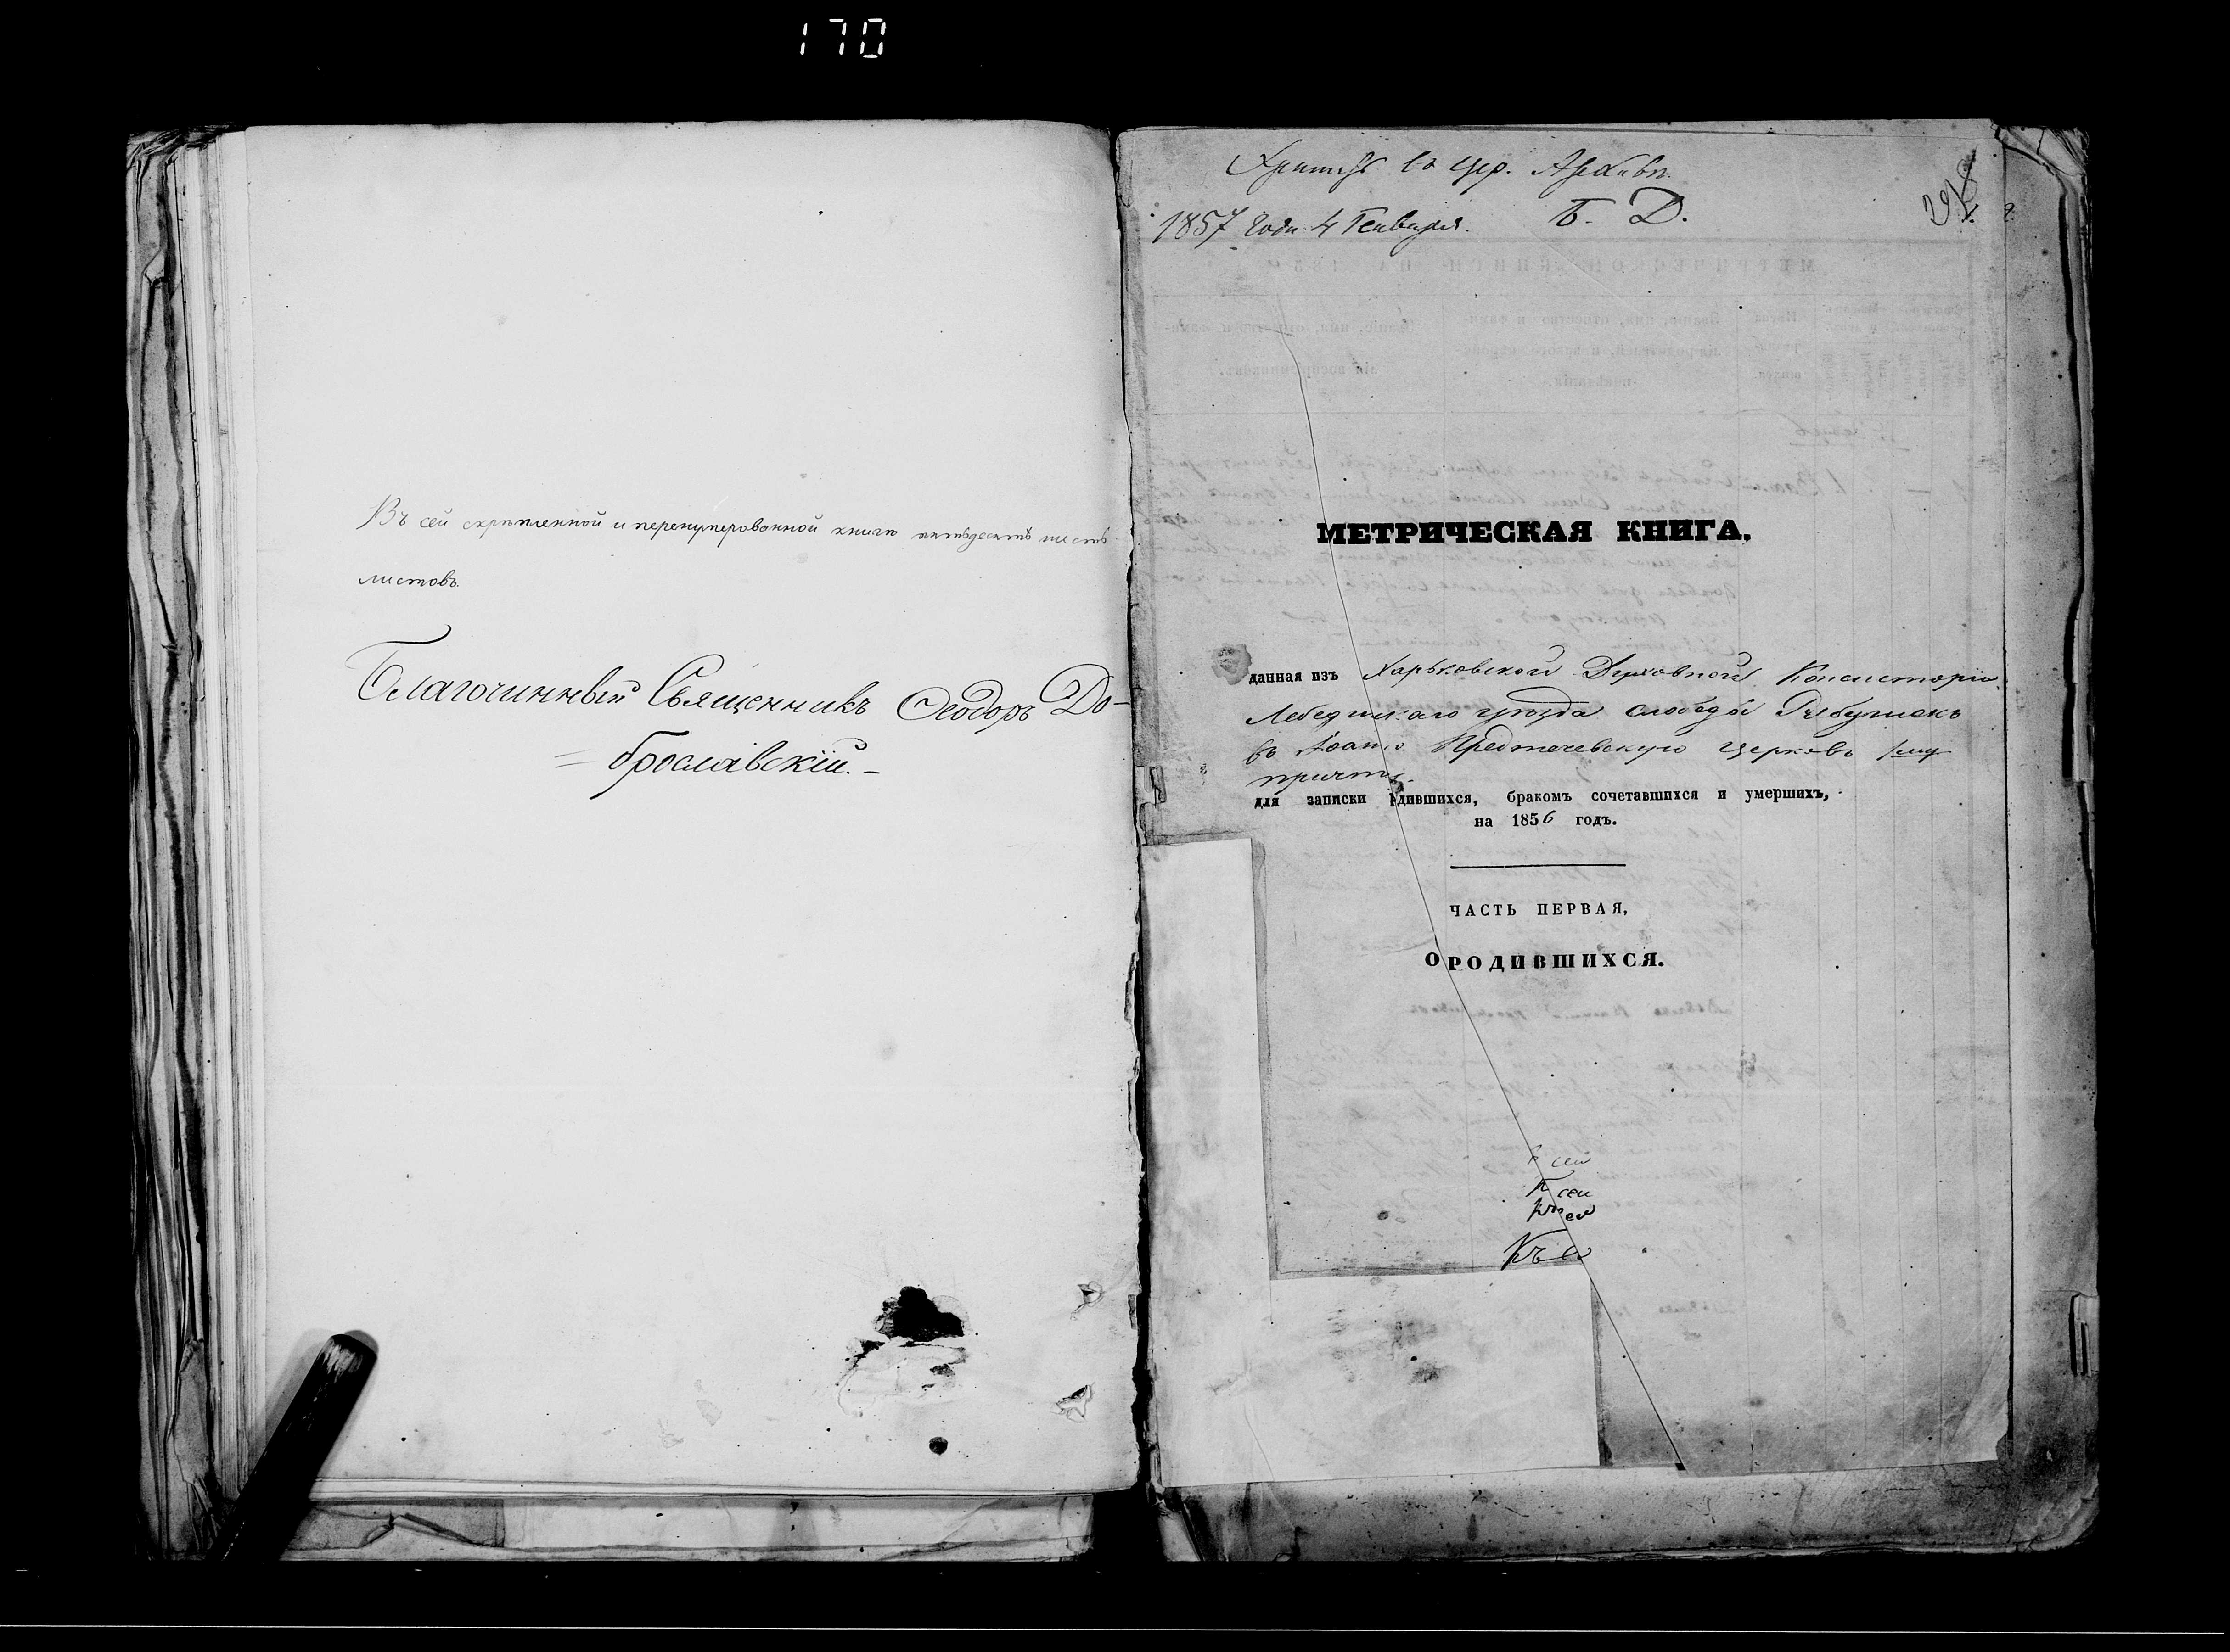 170
Въ сей скрѣпленной и перенумерованной книгѣ пятьдесятъ шесть
листовъ.
Благочинный Священникъ Ѳеодоръ До-
= брославскій. –
въ цер. Архивѣ.
1857 года 4 Генваря. Б. Д.
МЕТРИЧЕСКАЯ КНИГА,
данная изъ Харьковской Духовной Консисторіи
Лебединскаго уѣзда слободы Рябушекъ
въ Іоанно Предтечевскую церковь
причту.
для записки дившихся, бракомъ сочетавшихся и умершихъ,
на 1856 годъ.
ЧАСТЬ ПЕРВАЯ,
О РОДИВШИХСЯ.
сей
К сей
Къ